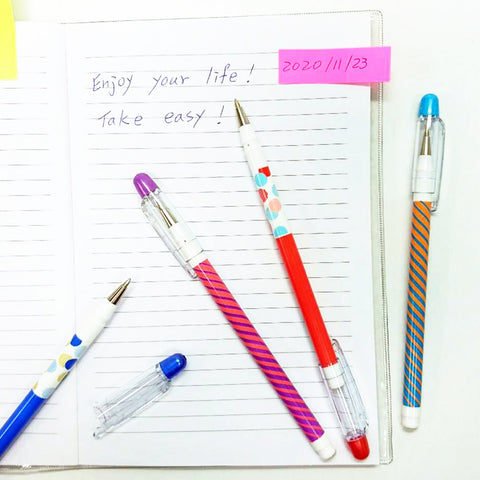 Enjoy your life!
2020/11/23
Take easy!